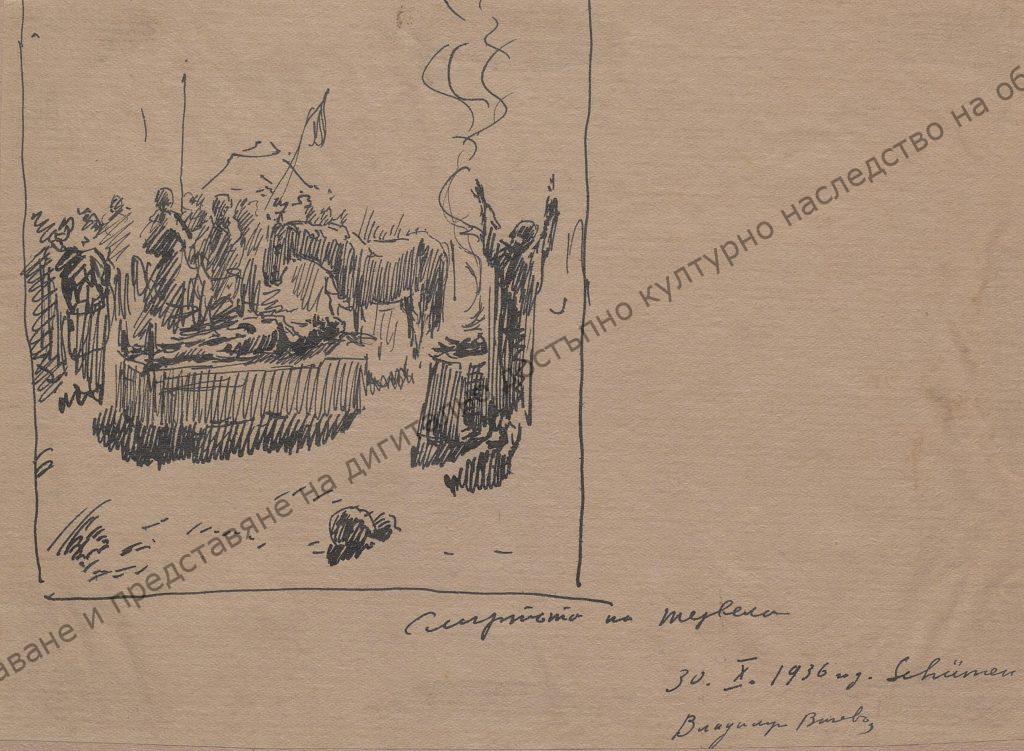 аване и представяне на дигитално достъпно културно наследство на об
Смъртьта на Тервела
30. X. 1936 год. Schümen
Владимир